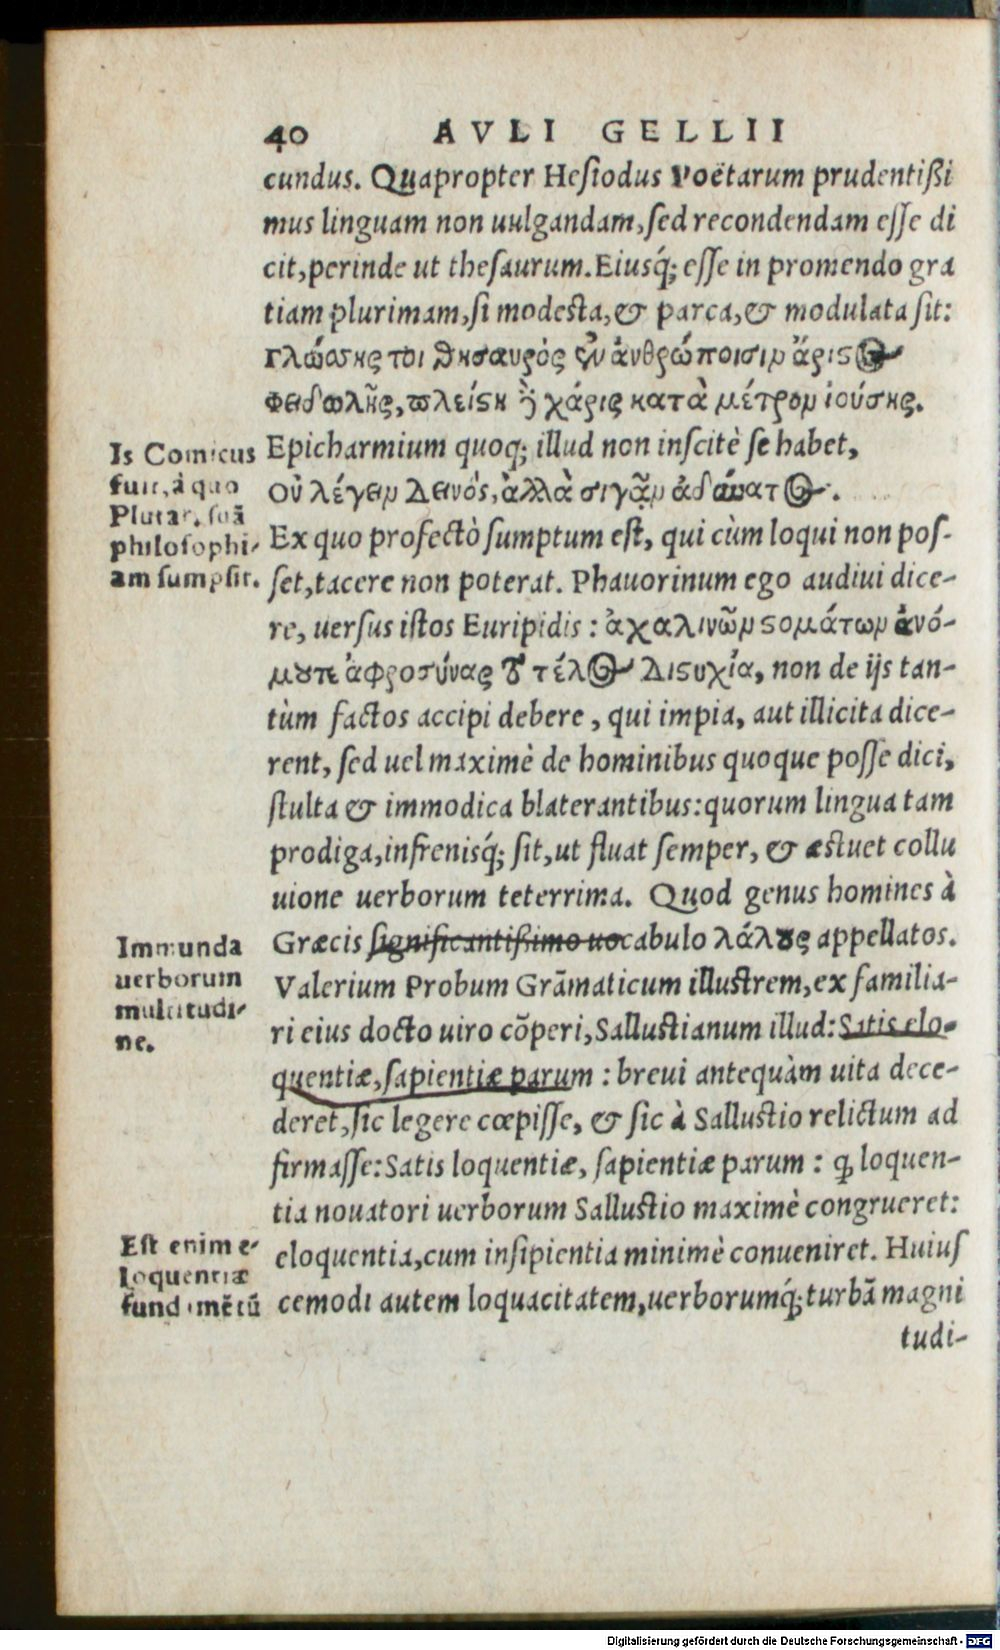 40 AVLI GELLII
cundus. Quapropter Hesiodus Poëtarum prudentißi
mus linguam non uulgandam, sed recondendam esse di
cit, perinde ut thesaurum. Eiusq́; esse in promendo gra
tiam plurimam, si modesta, & parca, & modulata sit:
Γλώσσης τοι θησαυρός ἐν ἀνθρώποισιν ἄριστος
Φειδωλῆς, πλείστη δὴ χάρις κατὰ μέτρον ἰούσης.
Epicharmium quoq; illud non inscitè se habet,
οὐ λέγειν Δεινός, ἀλλὰ σιγᾷν ἀδύνατος.
Ex quo profectò sumptum est, qui cùm loqui non pos-
set, tacere non poterat. Phauorinum ego audiui dice-
re, uersus istos Euripidis: ἀχαλινῶν στομάτων ἀνό-
μου τε ἀφροσύνας τὸ τέλος Διστυχία, non de ijs tan-
tùm factos accipi debere, qui impia, aut illicita dice-
rent, sed uel maximè de hominibus quoque posse dici,
stulta & immodica blaterantibus: quorum lingua tam
prodiga, infrenisq́; sit, ut fluat semper, & æstuet collu
uione uerborum teterrima. Quod genus homines à
Græcis significantißimo uocabulo λάλους appellatos.
Valerium Probum Grāmaticum illustrem, ex familia-
ri eius docto uiro cōperi, Sallustianum illud: Satis elo-
quentiæ, sapientiæ parum: breui antequàm uita dece-
deret, sic legere cœpisse, & sic à Sallustio relictum ad
firmasse: Satis loquentiæ, sapientiæ parum: ꝙ loquen-
tia nouatori uerborum Sallustio maximè congrueret:
eloquentia, cum insipientia minimè conueniret. Huius
cemodi autem loquacitatem, uerborumq́; turbā magni
tudi-
Is Comicus
fuit, à quo
Plutar. suā
philosophi-
am sumpsit.
Immunda
uerborum
multitudi-
ne.
Est enim e-
loquentiæ
fundamētū
Digitalisierung gefördert durch die Deutsche Forschungsgemeinschaft - DFG